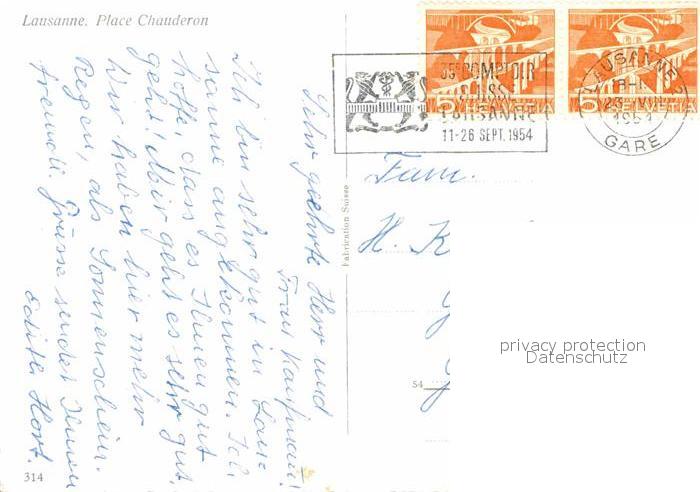 Lausanne, Place Chauderon
Sehr geehrte Herr und
Frau Kaufmann!
Ich bin sehr gut in Lau-
sanne angekommen. Ich
hoffe, dass es Ihnen gut
geht! Mir geht es sehr gut.
Wir haben hier mehr
Regen, als Sonnenschein.
freundl. Grüsse sendet Ihnen
Edith Horst.
314
Fabrication Suisse
35e COMPTOIR
SUISSE
LAUSANNE
11-26 SEPT. 1954
LAUSANNE
GARE
5
HELVETIA
5
HELVETIA
Fam.
H. K
54
privacy protection
Datenschutz